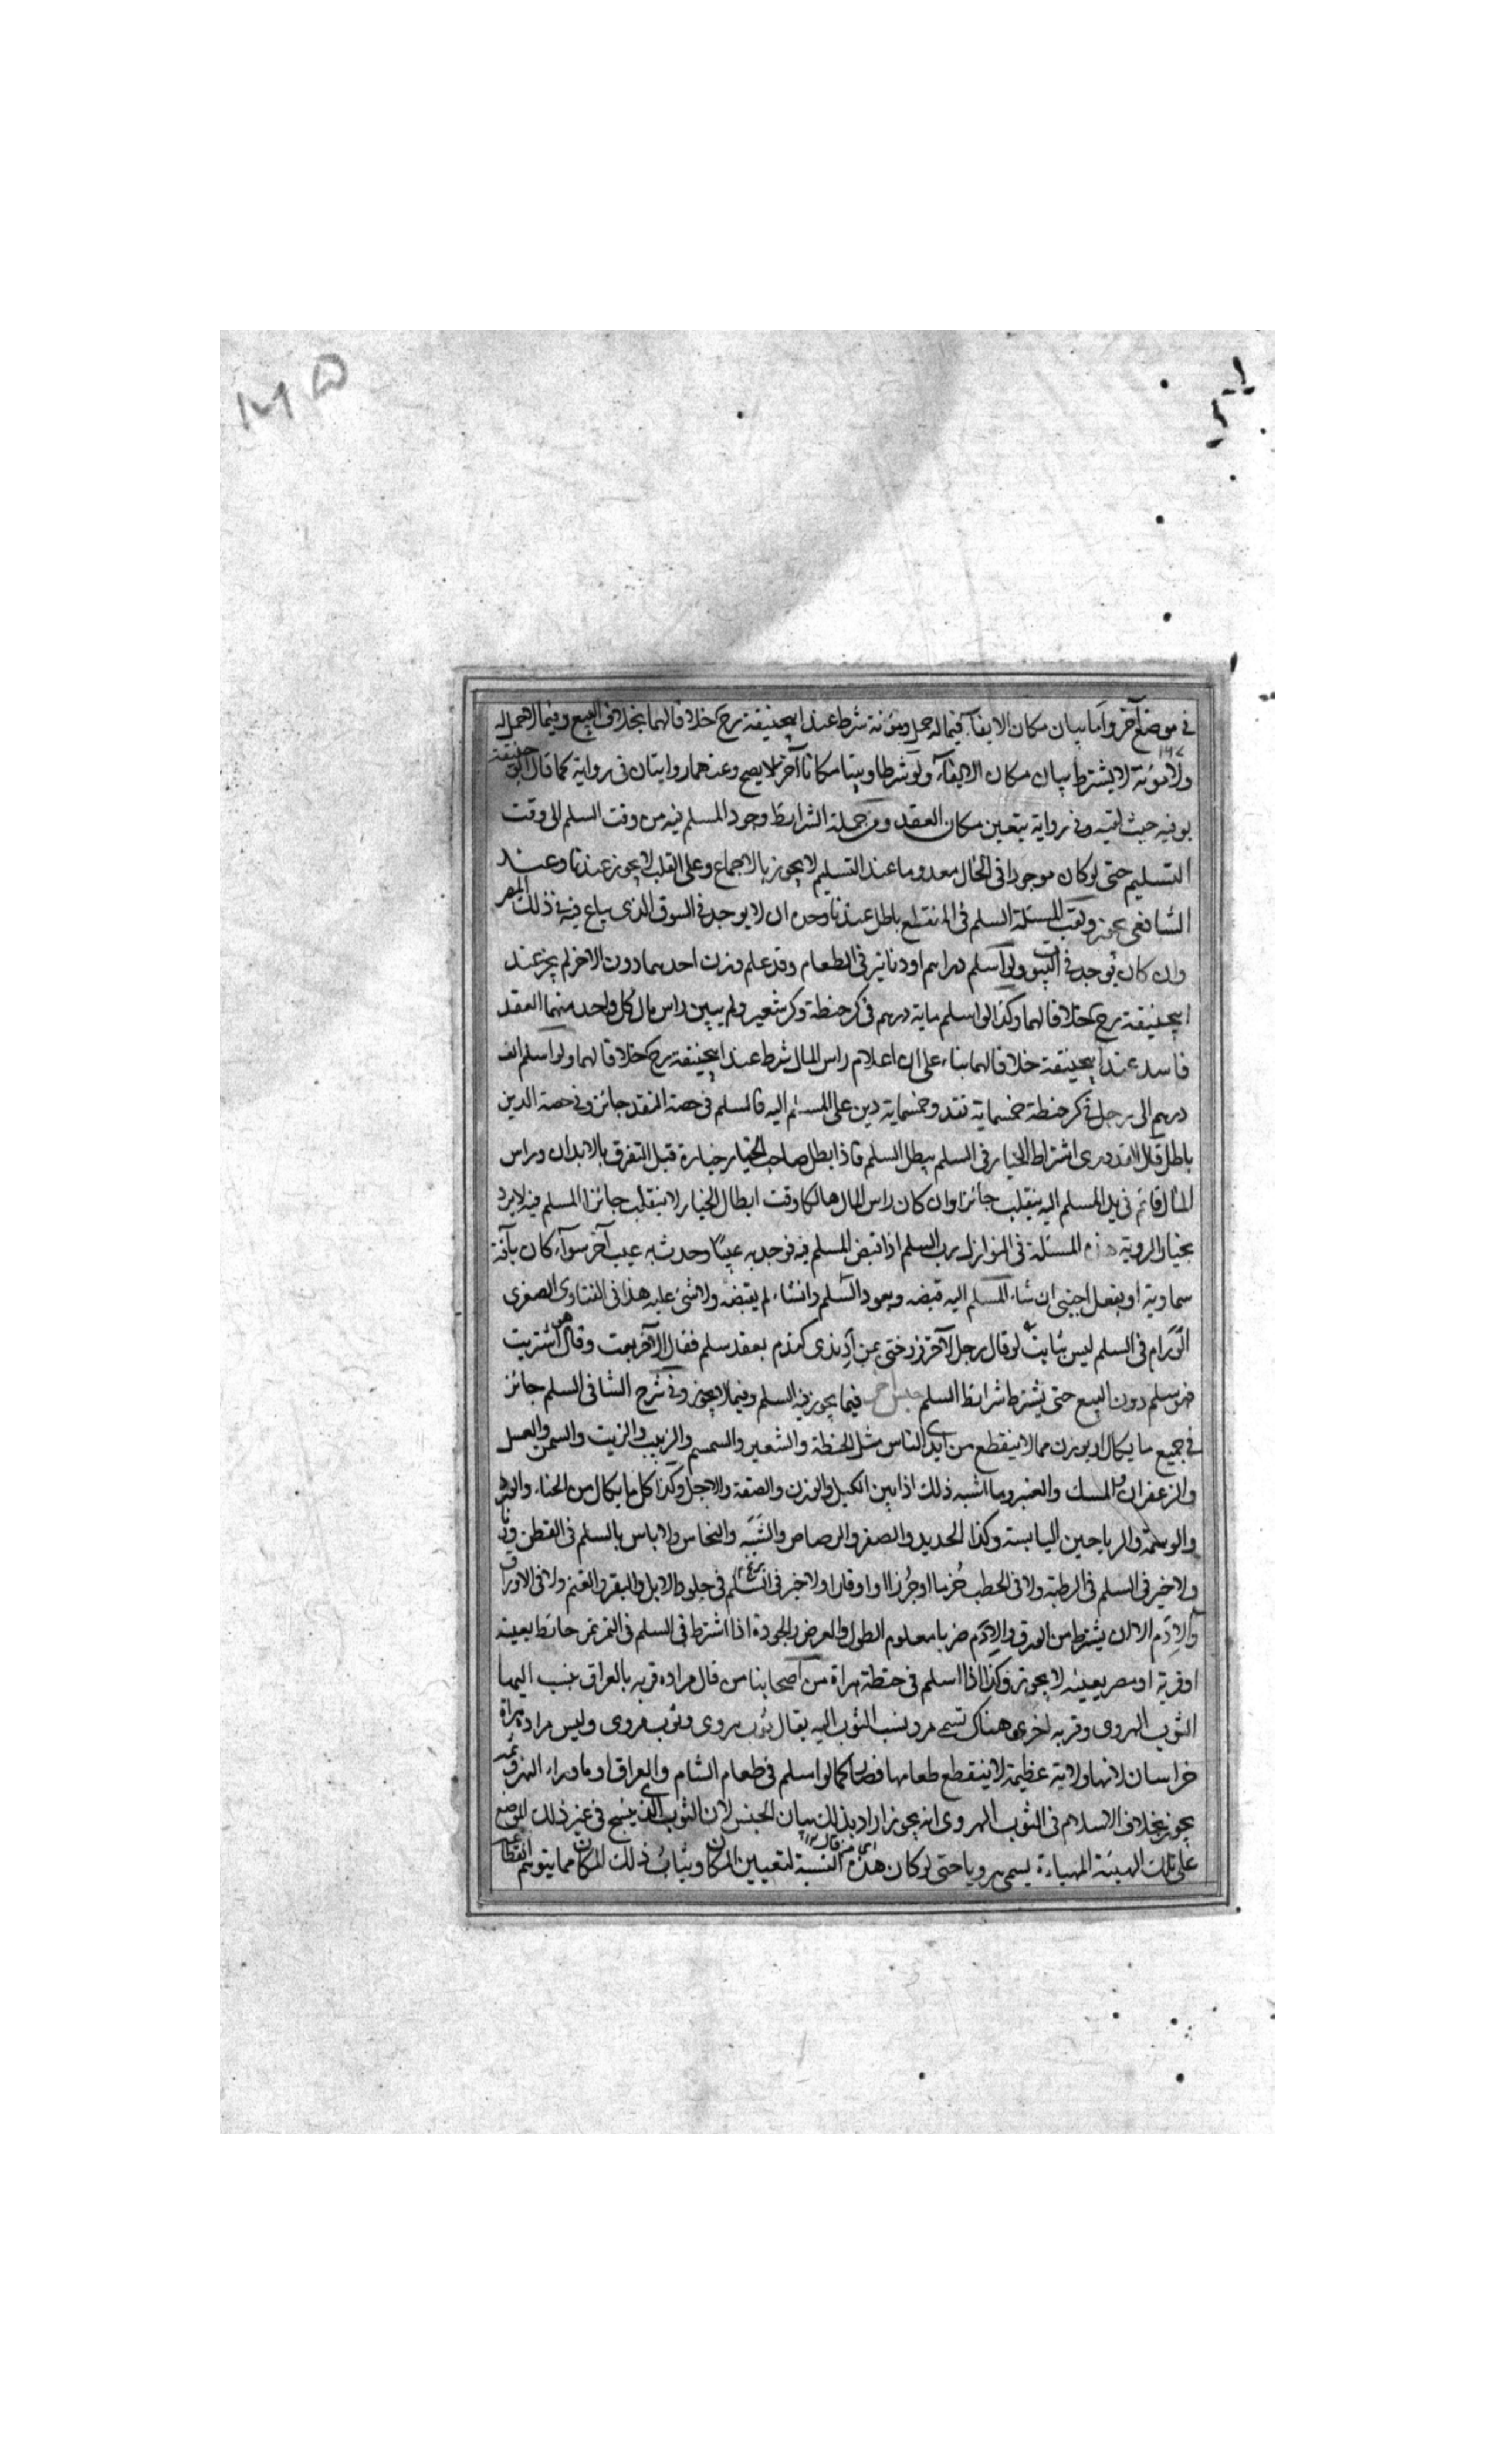 في موضع آخر واما بيان مكان الايفاء فيما له حمل ومؤنة شرط عند ابيحنيفة رح خلافا لهما بخلاف البيع وفيما لا حمل له
ولا مؤنة لا يشترط بيان مكان الايفاء ولو شرطا وبينا مكانا آخر لا يصح وعندهما روايتان في رواية كما قال ابو حنيفة
يوفيه حيث لقيه وفي رواية يتعين مكان العقد ومن جملة الشرايط وجود المسلم فيه من وقت السلم الى وقت
التسليم حتى لو كان موجودا في الحال معدوما عند التسليم لا يجوز بالاجماع وعلى القلب لا يجوز عندنا وعند
الشافعي يجوز ولقب المسئلة السلم في المنقطع باطل عندنا وحده ان لا يوجد في السوق الذي يباع فيه في ذلك المصر
وان كان يوجد في البيوت ولو اسلم دراهم او دنانير في الطعام وقد علم وزن احدهما دون الاخر لم يجز عند
ابيحنيفة رح خلافا لهما وكذا لو اسلم ماية درهم في كر حنطة وكر شعير ولم يبين راس مال كل واحد منهما العقد
فاسد عند ابيحنيفة خلافا لهما بناء على ان اعلام راس المال شرط عند ابيحنيفة رح خلافا لهما ولو اسلم الف
درهم الى رجل في كر حنطة خمسماية نقد وخمسماية دين على المسلم اليه فالسلم في حصة النقد جائز وفي حصة الدين
باطل قال القدوري اشتراط الخيار في السلم يبطل السلم فاذا ابطل صاحب الخيار خياره قبل التفرق بالابدان وراس
المال قائم في يد المسلم اليه ينقلب جائزا وان كان راس المال هالكا وقت ابطال الخيار لا ينقلب جائزا المسلم فيه لا يرد
بخيار الروية هذه المسئلة في النوازل رب السلم اذا قبض المسلم فيه فوجد به عيبا وحدث به عيب آخر سواء كان بآفة
سماوية او بفعل اجنبي ان شاء المسلم اليه قبضه ويعود السلم وان شاء لم يقبضه ولا شئ عليه هذا في الفتاوى الصغرى
في السلم ليس بثابت لو قال رجل لآخر كندم بعقد سلم فقال الآخر بعت وقال هو اشتريت
فهو سلم دون البيع حتى يشترط شرايط السلم فيما يجوز فيه السلم وفيما لا يجوز وفي شرح الشافي السلم جائز
في جميع ما يكال او يوزن مما لا ينقطع من ايدي الناس مثل الحنطة والشعير والسمسم والزبيب والزيت والسمن والعسل
والزعفران والمسك والعنبر وما اشبه ذلك اذا بين الكيل والوزن والصفة والاجل وكذا كل ما يكال من الحناء والورد
والوسمة والرياحين اليابسة وكذا الحديد والصفر والرصاص والشبه والنحاس ولا باس بالسلم في القطن
ولا خير في السلم في الرطبة ولا في الحطب حزما او جرزا او اوقارا ولا خير في السلم في جلود الابل والبقر والغنم ولا في الاوراق
والادم الا ان يشترط من الورق والادم ضربا معلوم الطول والعرض والجودة اذا اشترط في السلم في التمر تمر حائط بعينه
او قرية او مصر بعينه لا يجوز وكذا اذا اسلم في حنطة هراة من اصحابنا من قال مراده قرية بالعراق ينسب اليها
الثوب الهروي وقرية اخرى هناك تسمى مرو ينسب الثوب اليه يقال ثوب هروي وثوب مروي وليس مراده هراة
خراسان لانها ولاية عظيمة لا ينقطع طعامها فصار كما لو اسلم في طعام الشام والعراق او ما وراء النهر
يجوز بخلاف الاسلام في الثوب الهروي انه يجوز اراد بذلك بيان الجنس لان الثوب الذي ينسج في غير ذلك الموضع
على تلك الهيئة المهياءة يسمى هرويا حتى لو كان هذه النسبة لتعيين المكان وثياب ذلك المكان مما يتوهم انقطاعه